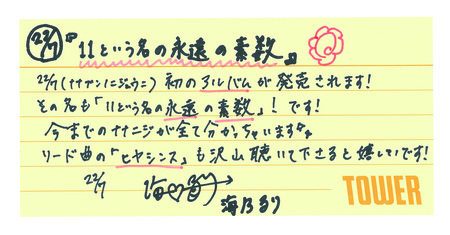 22/7 『11という名の永遠の素数』
22/7(ナナブンノニジュウニ)初のアルバムが発売されます!
その名も「11という名の永遠の素数」!です!
今までのナナニジが全て分かっちゃいます
リード曲の「ヒヤシンス」も沢山聴いて下さると嬉しいです!
22/7 海乃るり
海乃るり
TOWER